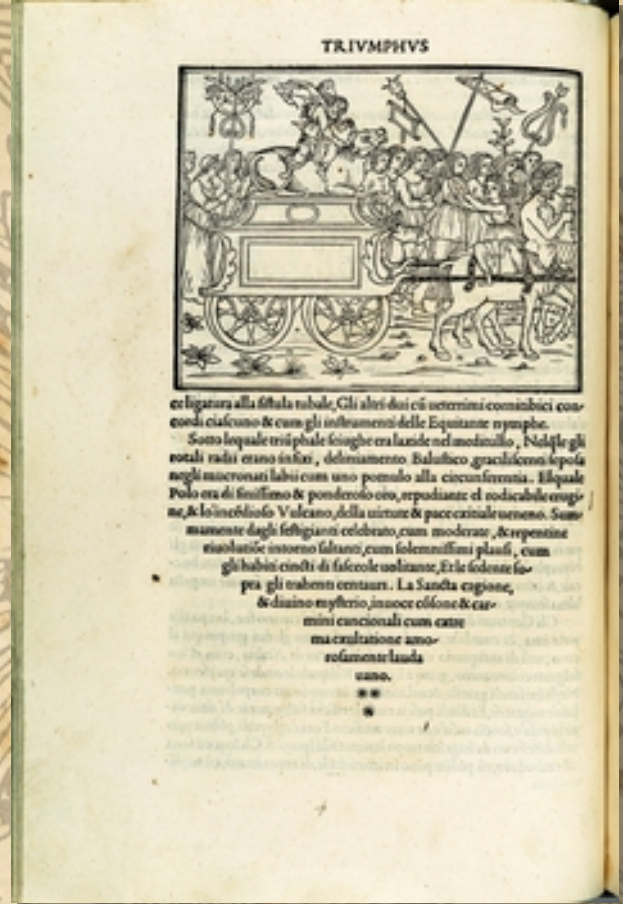 TRIVMPHVS
ce ligatura alla fistula tubale, Gli altri dui cū ueterrimi cornitibici con-
cordi ciascuno & cum gli instrumenti delle Equitante nymphe.
Sotto lequale triūphale seiughe era laxide nel meditullo, Nelq̄le gli
rotali radii erano infixi, deliniamento Balustico, graciliscenti seposa
negli mucronati labii cum uno pomulo alla circunferentia. Elquale
Polo era di finissimo & ponderoso oro, repudiante el rodicabile erugi-
ne, & lo'incēdioso Vulcano, della uirtute & pace exitiale ueneno. Sum-
mamente dagli festigianti celebrato, cum moderate, & repentine
riuolutiōe intorno saltanti, cum solemnissimi plausi, cum
gli habiti cincti di fasceole uolitante, Et le sedente so-
pra gli trahenti centauri. La Sancta cagione,
& diuino mysterio, inuoce cōsone & car-
mini cancionali cum extre
ma exultatione amo-
rosamente lauda
uano.